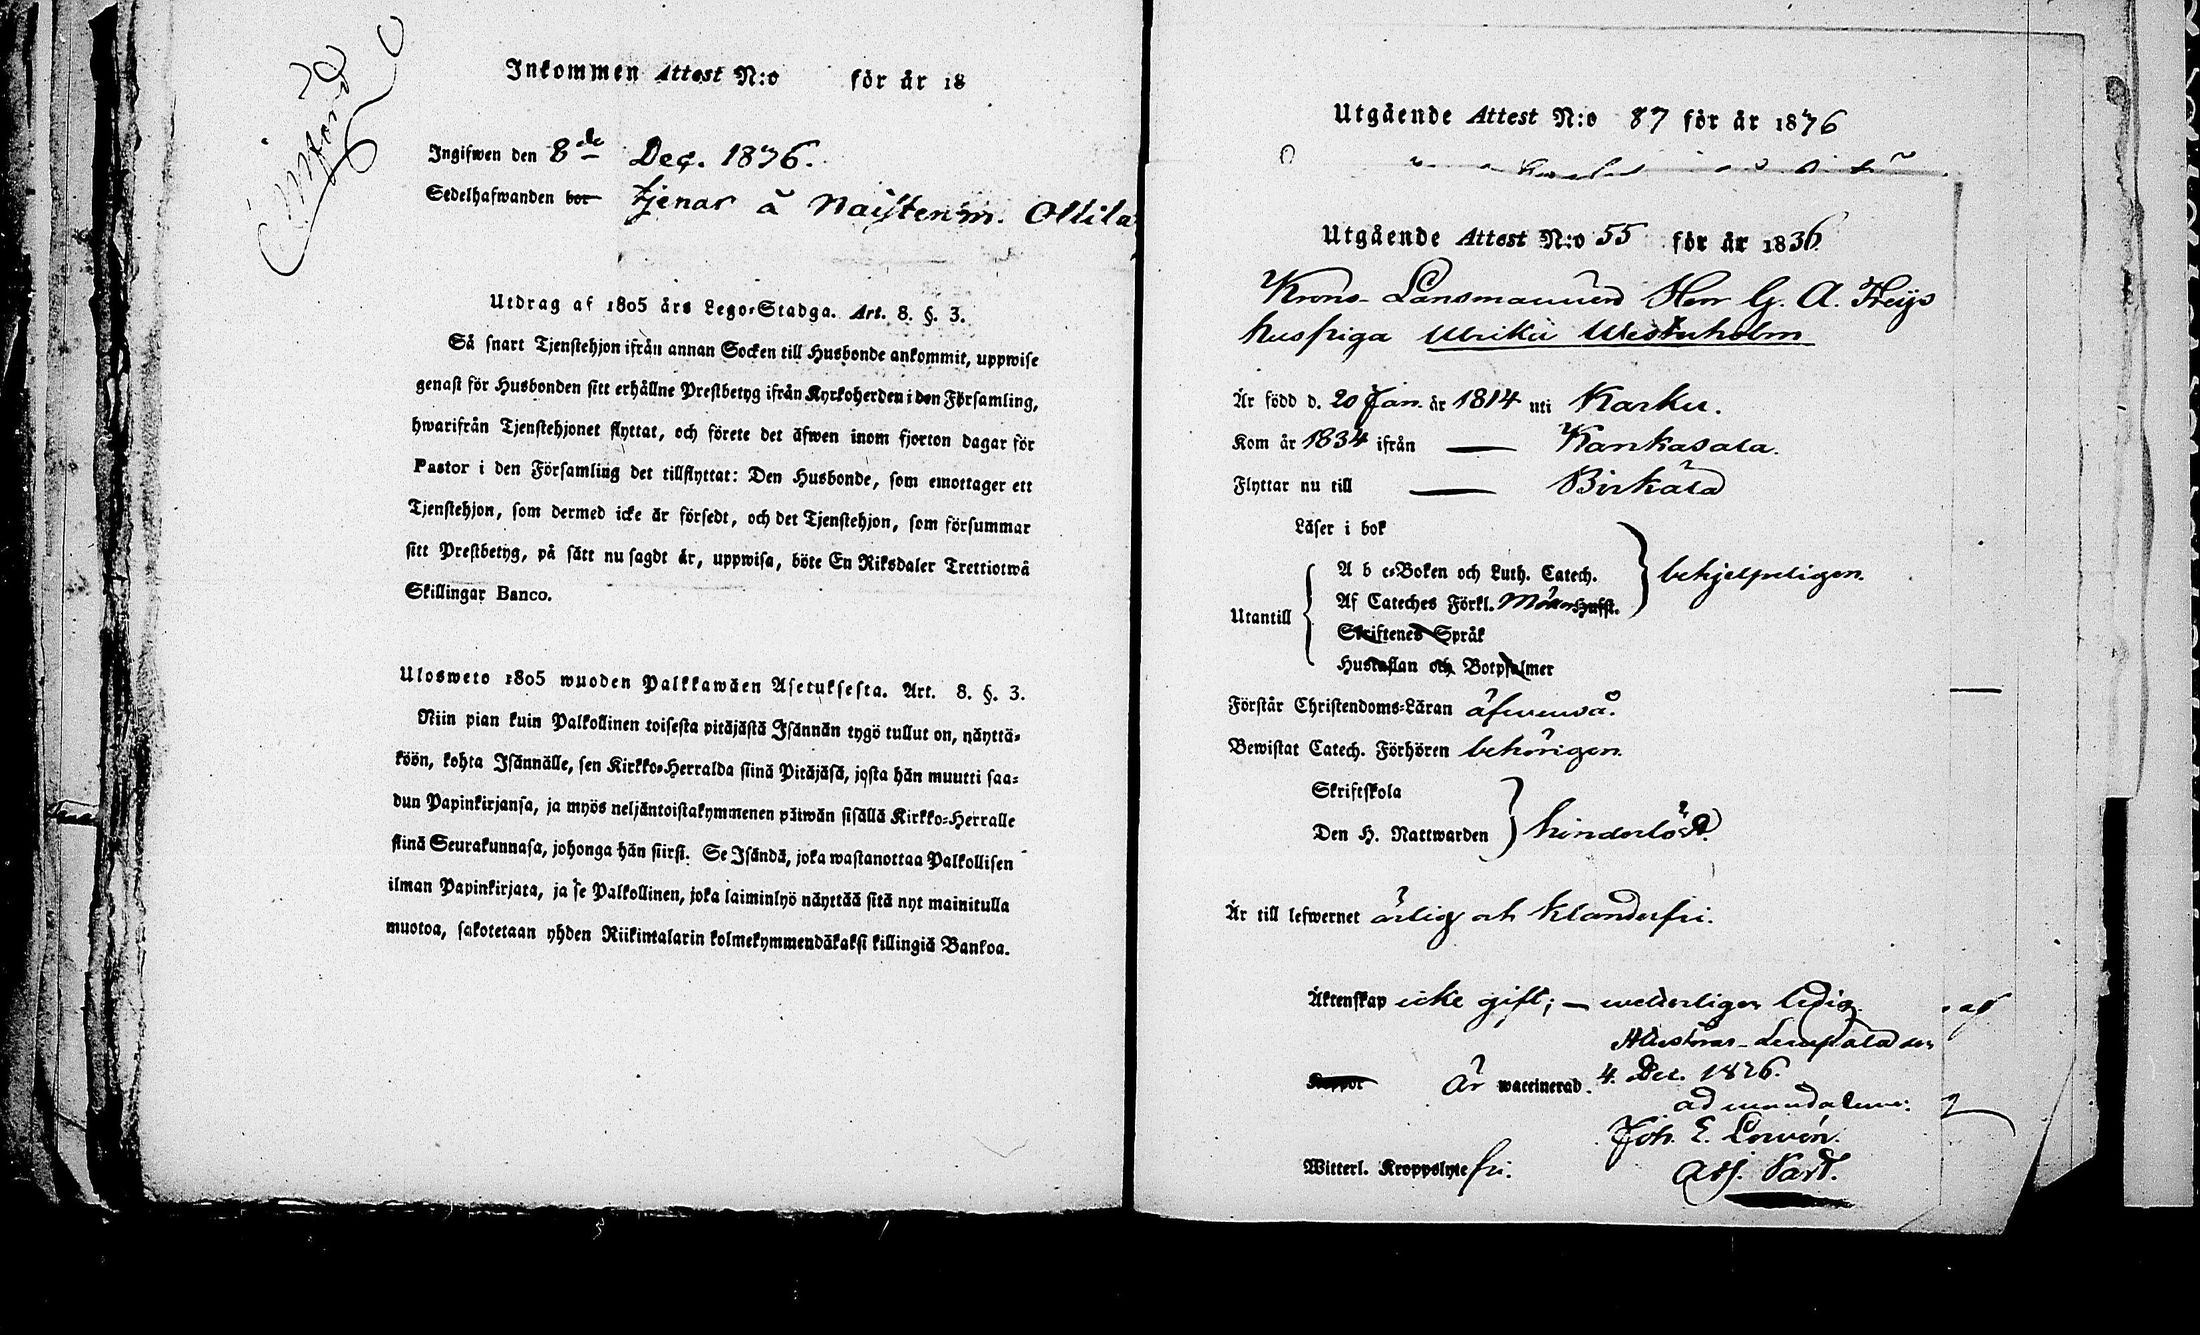 införd
Inkommen Attest N:o för år 18
Ingifwen den 8de Dec. 1836.
Sedelhafwanden bor tjenar å Naistenm. Ollila
Utdrag af 1805 års Lego-Stadga. Art. 8. §. 3.
Så snart Tjenstehjon ifrån annan Socken till Husbonde ankommit, uppwise
genast för Husbonden sitt erhållne Prestbetyg ifrån Kyrkoherden i den Församling,
hwarifrån Tjenstehjonet flyttat, och förete det äfwen inom fjorton dagar för
Pastor i den Församling det tillflyttat: Den Husbonde, som emottager ett
Tjenstehjon, som dermed icke är försedt, och det Tjenstehjon, som försummar
sitt Prestbetyg, på sätt nu sagdt är, uppwisa, böte En Riksdaler Trettiotwå
Skillingar Banco.
Ulosweto 1805 wuoden Palkkawäen Asetuksesta. Art. 8. §. 3.
Niin pian kuin Palkollinen toisesta pitäjästä Isännän tygö tullut on, näyttä-
köön, kohta Isännälle, sen Kirkko-Herralda siinä Pitäjäsä, josta hän muutti saa-
dun Papinkirjansa, ja myös neljäntoistakymmenen päiwän sisällä Kirkko-Herralle
siinä Seurakunnasa, johonga hän siirsi. Se Isändä, joka wastanottaa Palkollisen
ilman Papinkirjata, ja se Palkollinen, joka laiminlyö näyttää sitä nyt mainitulla
muotoa, sakotetaan yhden Riikintalarin kolmekymmendäkaksi killingiä Bankoa.
Utgående Attest N:o 87 för år 1836
Utgående Attest N:o 55 för år 1836
Krono-Länsmannen Herr G. A. Heijs
huspiga Ulrika Westerholm
Är född d. 20 Jan. år 1814 uti Karku.
Kom år 1834 ifrån — Kankasala.
Flyttar nu till — Birkala
Läser i bok
A b c-Boken och Luth. Catech. behjelpeligen.
Utantill Af Cateches Förkl. Möllers Hufst.
Skriftenes Språk
Hustaflan och Botpsalmer
Förstår Christendoms-Läran äfvenså.
Bewistat Catech. Förhören behörigen.
Skriftskola
Den H. Nattwarden hinderlöst.
Är till lefwernet ärlig och klanderfri.
Äktenskap icke gift; — wetterligen ledig.
4. Dec. 1836.
Koppor Är waccinerad.
ad mandatum:
Joh. E.
Witterl. Kroppslyte fri.
Adj. Past.